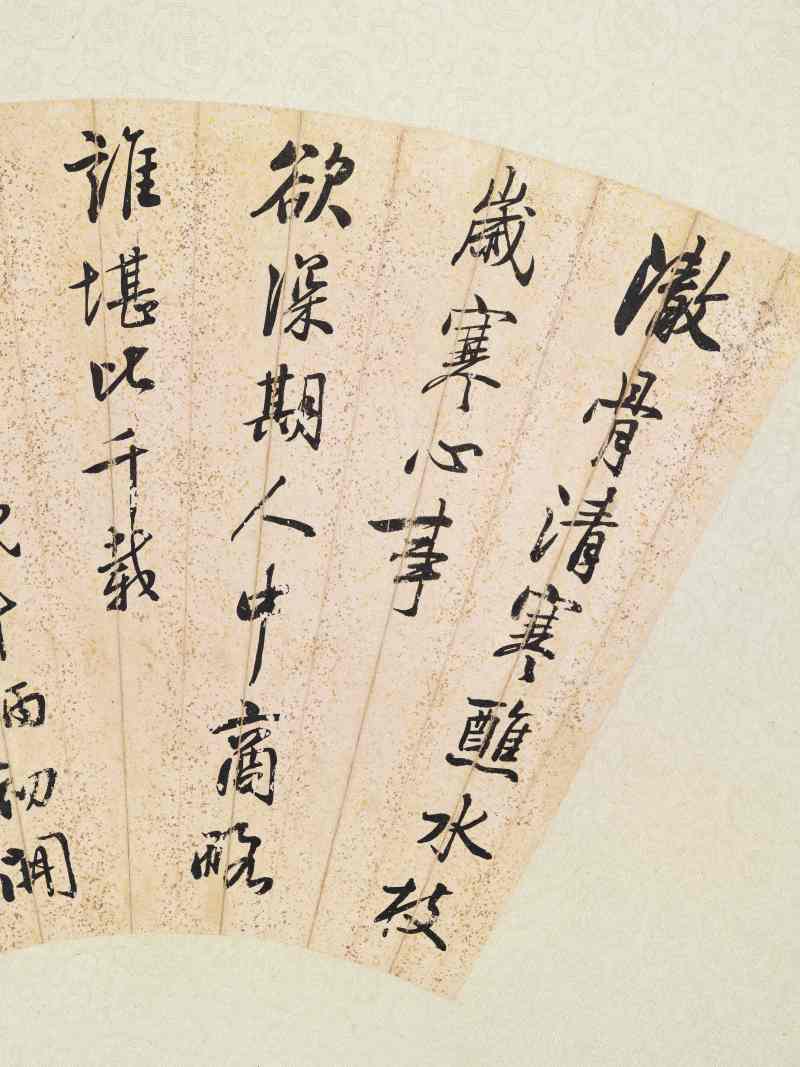 澈骨清寒蘸水枝
歲寒心事
欲深期人中商略
誰堪比千載
雨初開